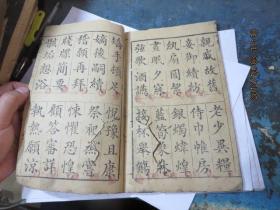 親戚故舊
老少異糧
妾御績紡
侍巾帷房
紈扇圓潔
銀燭煒煌
晝眠夕寐
藍筍象床
弦歌酒讌
接杯舉觴
矯手頓足
悅豫且康
嫡後嗣續
祭祀蒸嘗
稽顙再拜
悚懼恐惶
牋牒簡要
顧答審詳
骸垢想浴
執熱願涼